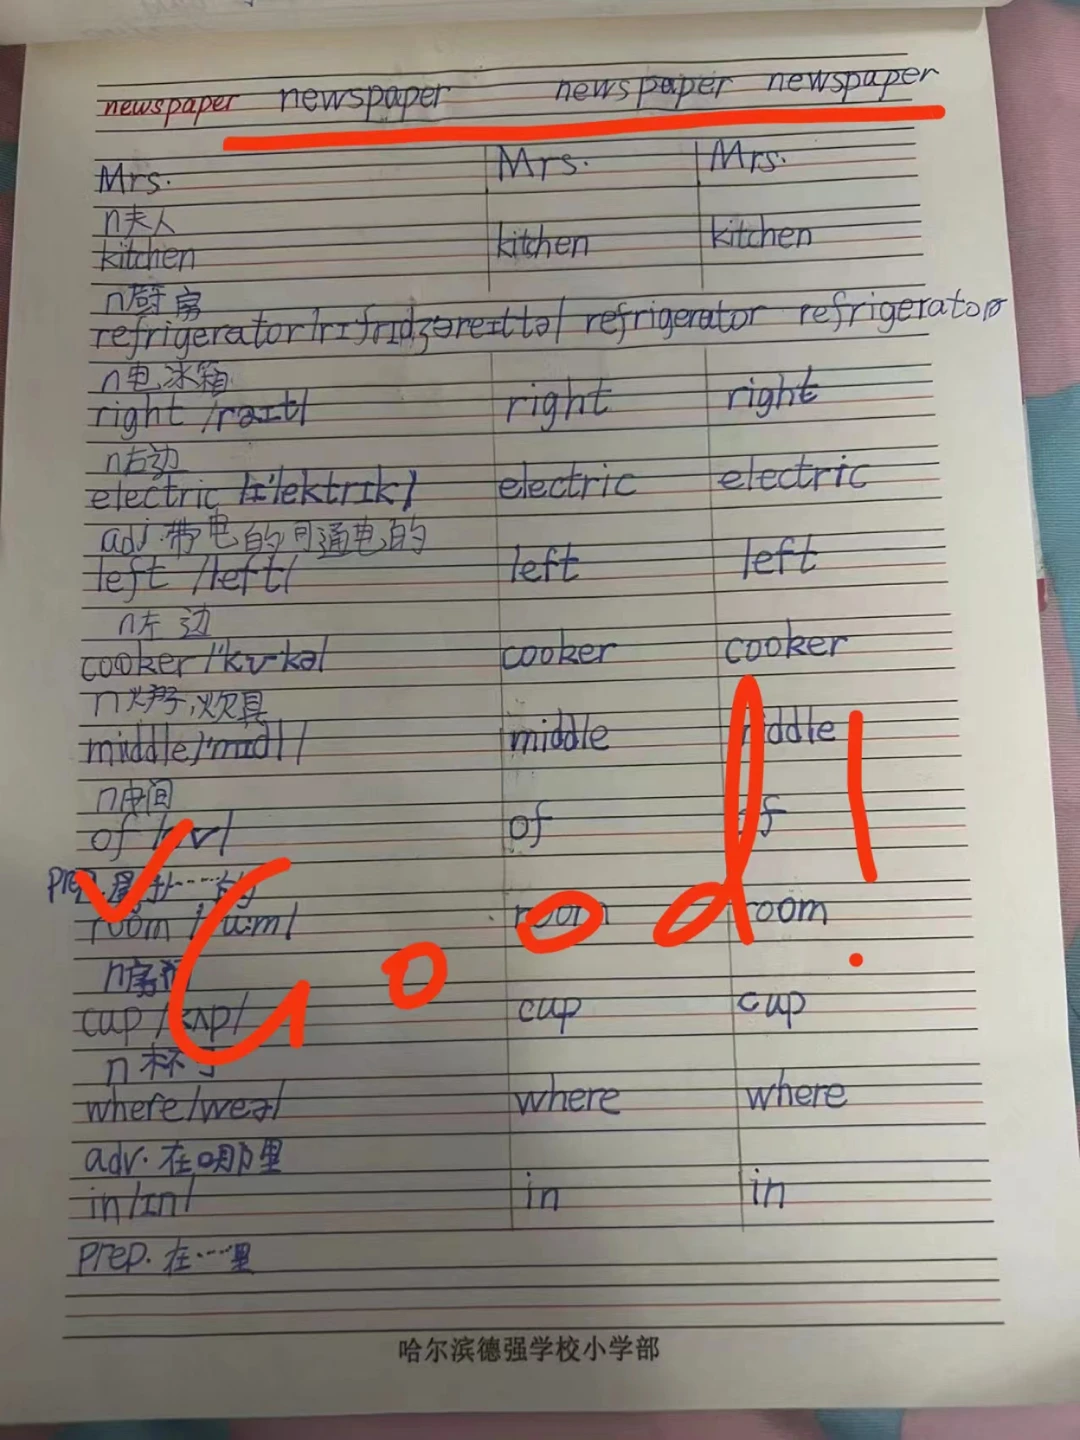 newspaper newspaper newspaper newspaper
Mrs. Mrs. Mrs.
n夫人
kitchen kitchen kitchen
n厨房
refrigerator /rɪfrɪdʒəreɪttə/ refrigerator refrigerator
n电冰箱
right /raɪt/ right right
n右边
electric /ɪ'lektrɪk/ electric electric
adj.带电的可通电的
left /left/ left left
n左边
cooker /'kʊkə/ cooker cooker
n炉子,炊具
middle /'mɪdl/ middle middle
n中间
of /ɒv/ of of
prep.属于……的
room /ru:m/ room room
n房间
Good!
cup /kʌp/ cup cup
n杯子
where /weə/ where where
adv.在哪里
in /ɪn/ in in
prep.在……里
哈尔滨德强学校小学部